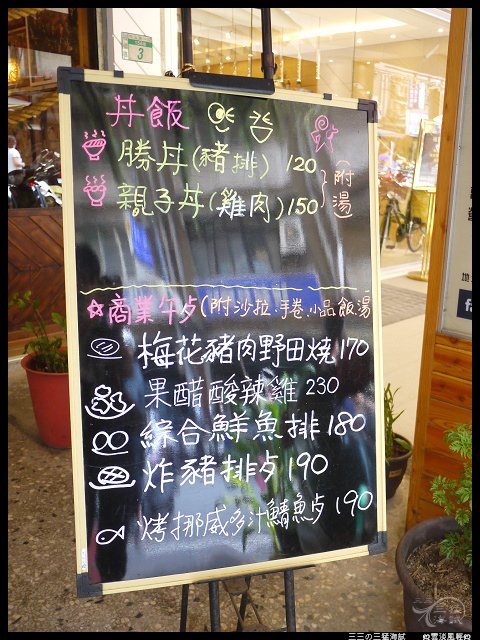 3
丼飯
勝丼(豬排) 120
親子丼(雞肉) 150
(附湯)
商業午歺(附沙拉.手卷.小品.飯.湯
梅花豬肉野田燒170
果醋酸辣雞 230
綜合鮮魚排 180
炸豬排歺 190
烤挪威多汁鯖魚歺 190
三三の三猛海賦
雲淡風輕